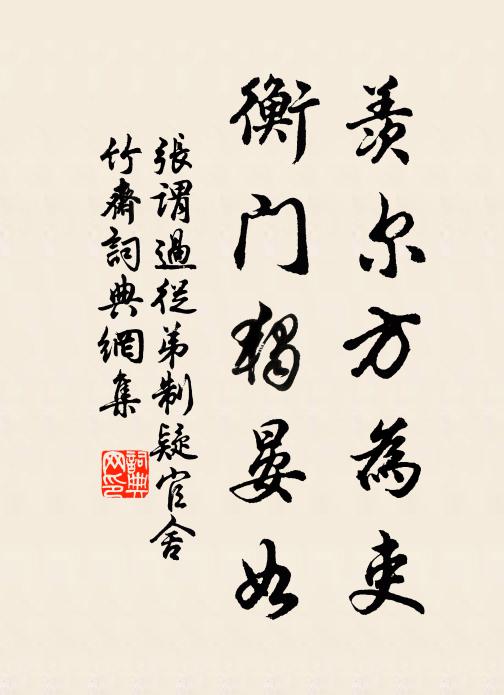 羨尔方為吏
衡门独晏如
張謂過從弟制疑官舍
竹齋詞典網集
詞典网印